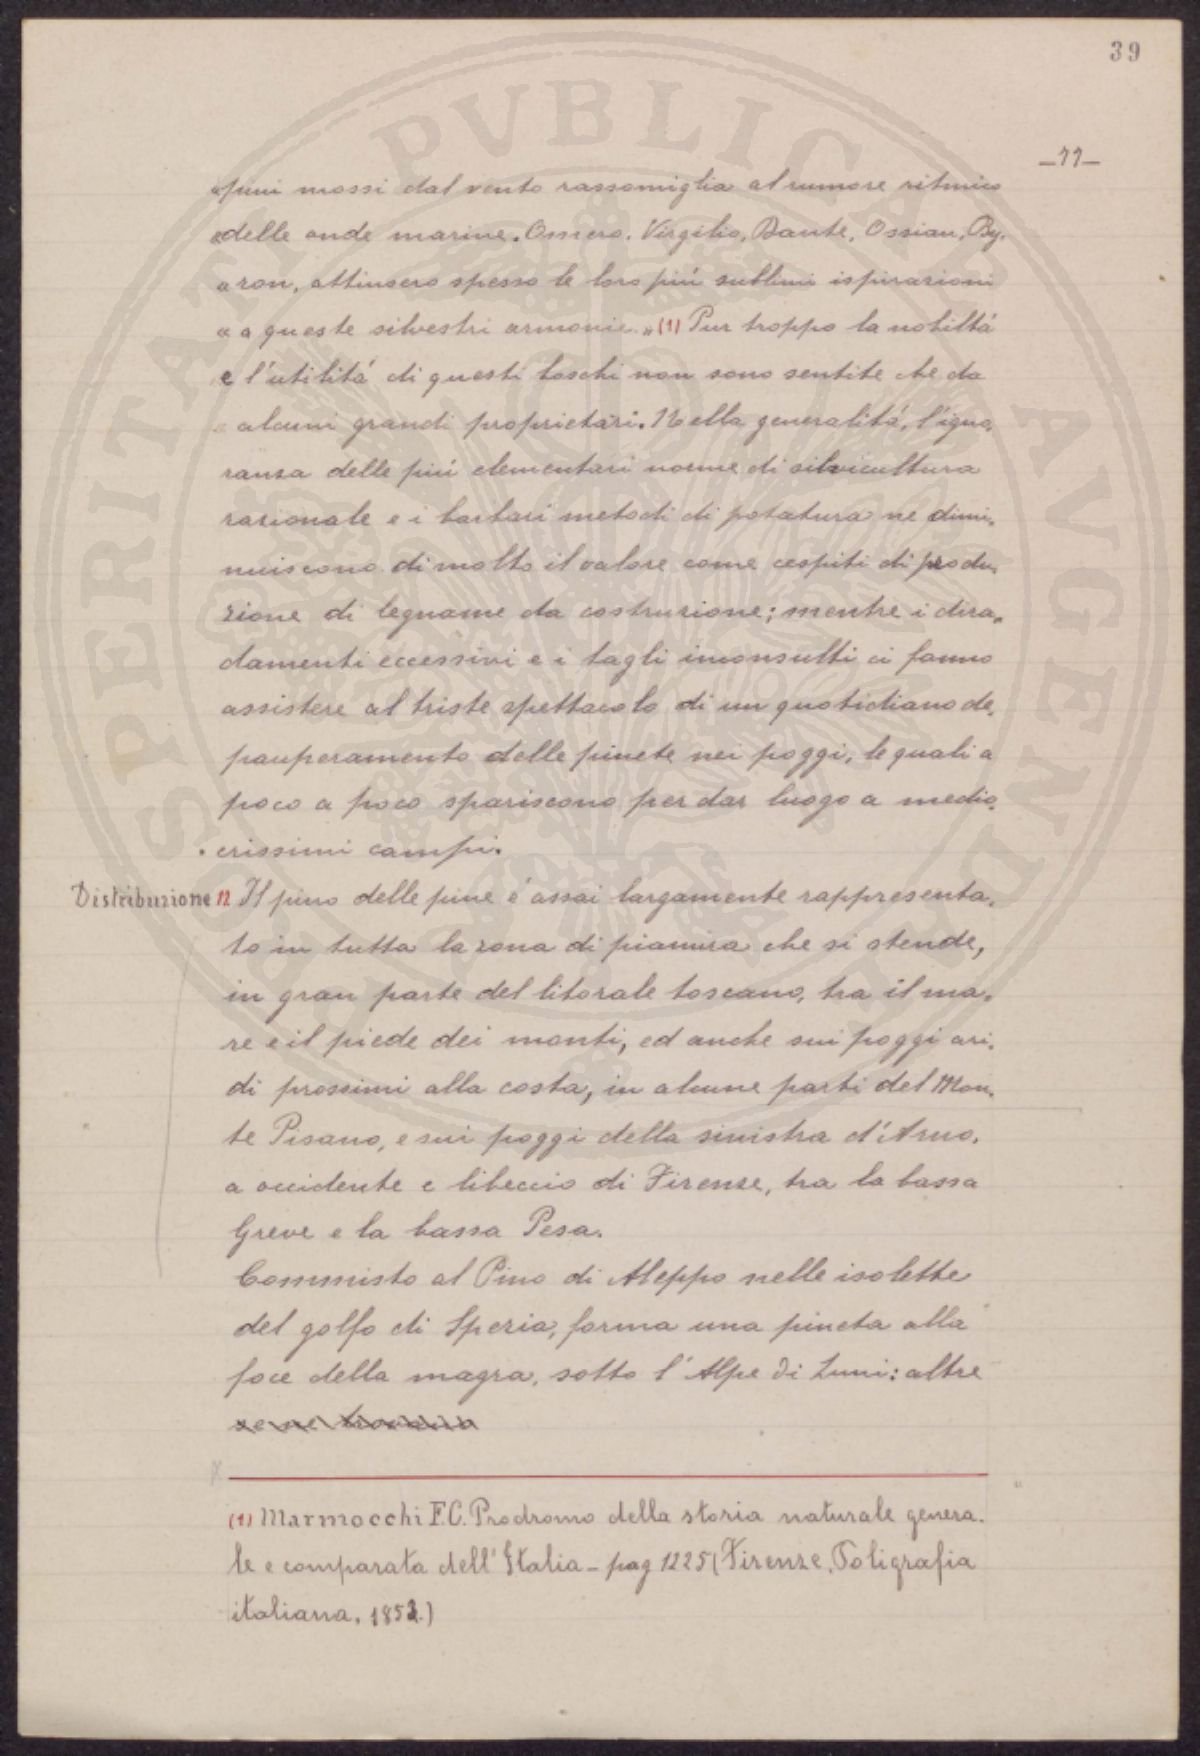 39
—11—
« pini mossi dal vento rassomiglia al rumore ritmico
« delle onde marine. Omero, Virgilio, Dante, Ossian, By-
« ron, attinsero spesso le loro piú sublimi ispirazioni
« a queste silvestri armonie.„ (1) Pur troppo la nobiltá
e l'utilitá di questi boschi non sono sentite che da
alcuni grandi proprietari. Nella generalitá, l'igno-
ranza delle piú elementari norme di silvicultura
razionale e i barbari metodi di potatura ne dimi-
nuiscono di molto il valore come cespiti di produ-
zione di legname da costruzione; mentre i dira-
damenti eccessivi e i tagli inconsulti ci fanno
assistere al triste spettacolo di un quotidiano de-
pauperamento delle pinete nei poggi, le quali a
poco a poco spariscono per dar luogo a medio-
crissimi campi.
Distribuzione 12 Il pino delle pine é assai largamente rappresenta-
to in tutta la zona di pianura che si stende,
in gran parte del litorale toscano, tra il ma-
re e il piede dei monti, ed anche sui poggi ari-
di prossimi alla costa, in alcune parti del Mon-
te Pisano, e sui poggi della sinistra d'Arno,
a occidente e libeccio di Firenze, tra la bassa
Greve e la bassa Pesa.
Commisto al Pino di Aleppo nelle isolette
del golfo di Spezia, forma una pineta alla
foce della magra, sotto l'Alpe di Luni: altre
se ne trovano
(1) Marmocchi F.C. Prodromo della storia naturale genera-
le e comparata dell'Italia – pag 1225 (Firenze, Poligrafia
italiana, 1853.)
PROSPERITATI PVBLICAE AVGENDAE